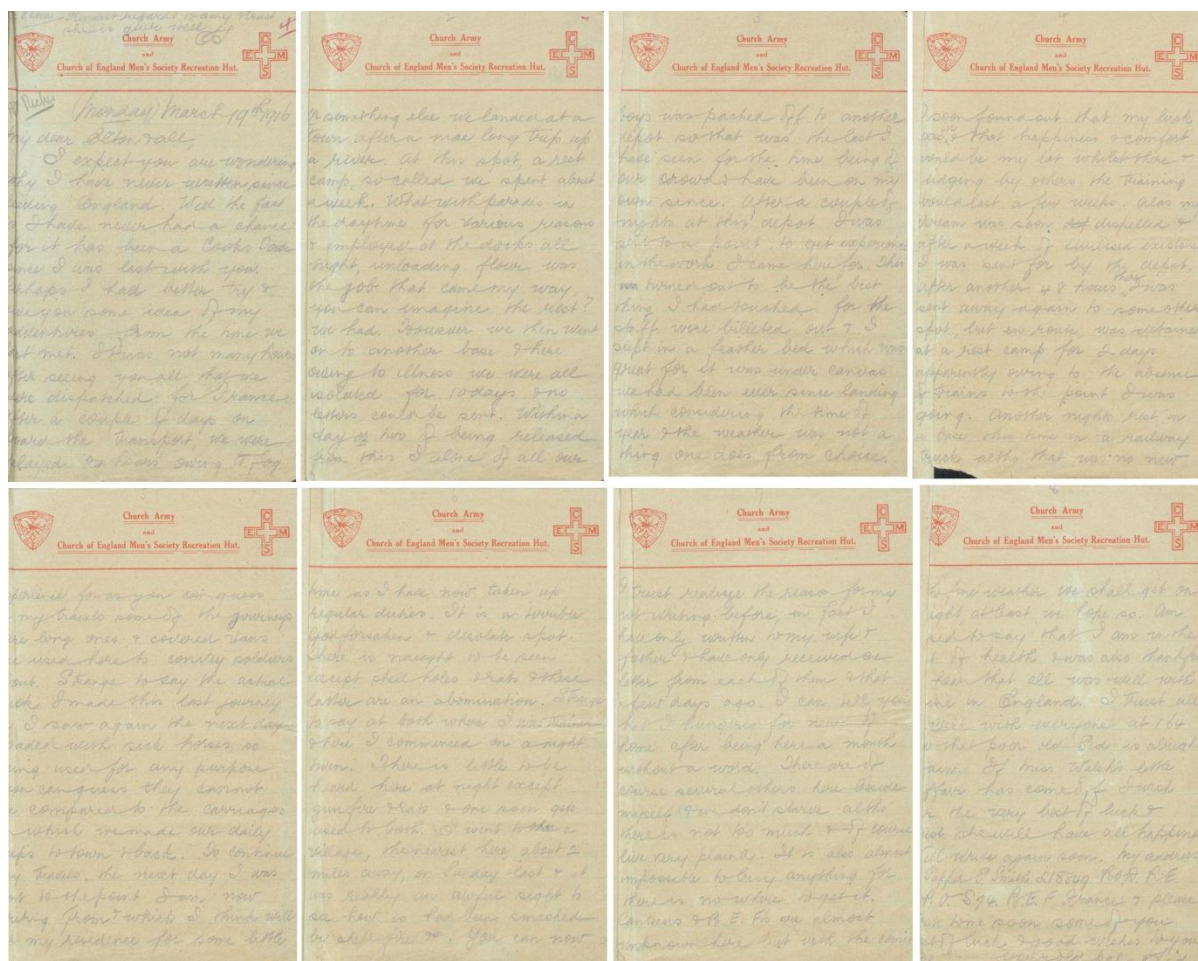 kindest regards to amy & trust
she is quite well
4
Church Army
and
Church of England Men's Society Recreation Hut.
C E M S
(Monday) March 19th 1916
my dear & all,
I expect you are wondering
hy I have never written since
England. Well the fact
s I have never had a chance
for it has been a Cooks
I was last with you.
rhaps I had better try &
ve you some idea of my
dventures from the time we
st met. It was not many hours
fter seeing you all that we
ere dispatched for France
fter a couple of days on
oard the Transport we were
elayed 20 hours owing to fog
2
Church Army
and
Church of England Men's Society Recreation Hut.
C E M S
or something else we landed at a
town after a nice long trip up
a river. At this spot, a rest
camp, so called we spent about
a week. What with parades in
the daytime for various reasons
& employed at the docks all
night, unloading flour was
the job that came my way,
you can imagine the rest?
we had. However we then went
on to another base & here
owing to illness we were all
isolated for 10 days & no
letters could be sent. Within a
day or two of being released
from this I alone of all our
3
Church Army
and
Church of England Men's Society Recreation Hut.
C E M S
boys was packed off to another
depot so that was the last I
have seen for the time being of
our crowd & have been on my
own since. After a couple of
nights at this depot I was
sent to a point to get experience
in the work I came here for. This
turned out to be the best
thing I had touched for the
staff were billeted out & I
slept in a feather bed which was
great for it was under canvas
we had been ever since landing
which considering the time of
year & the weather was not a
thing one does from choice.
4
Church Army
and
Church of England Men's Society Recreation Hut.
C E M S
I soon found out that my luck
was & that happiness & comfort
would be my lot whilst there &
judging by others the training
would last a few weeks. Alas my
dream was soon dispelled &
after a week of civilised existen
I was sent for by the depot.
after another 48 hours there I was
sent away again to some other
spot, but en route was detained
at a rest camp for 2 days
apparently owing to the absence
of trains to the point I was
going. Another nights rest in
a case this time in a railway
truck altho that was no new
5
Church Army
and
Church of England Men's Society Recreation Hut.
C E M S
xperience for as you can guess
my travels some of the journeys
re long ones & covered vans
e used here to convey soldiers
out. Strange to say the actual
I made this last journey
I saw again the next day
oaded with sick horses, so
ing used for any purpose
you can guess they cannot
e compared to the carriages
which we made our daily
ips to town & back. To continue
y travels, the next day I was
nt to the point I am now
riting from & which I think will
my residence for some little
6
Church Army
and
Church of England Men's Society Recreation Hut.
C E M S
time as I have now taken up
regular duties. It is a terrible
Godforsaken & desolate spot.
There is naught to be seen
except shell holes & rats & these
latter are an abomination. Strange
to say at both where I was training
& here I commenced on a night
turn. There is little to be
heard here at night except
gunfire & rats & one soon gets
used to both. I went to a
village, the nearest here about 2
miles away, on Sunday last & it
was really an awful sight to
see how it had been smashed
by shell fire &c. You can now
7
Church Army
and
Church of England Men's Society Recreation Hut.
C E M S
I trust realize the reason for my
not writing before, in fact I
have only written to my wife &
father & have only received one
letter from each of them & that
a few days ago. I can tell you
that I hunger for news of
home after being here a month
without a word. There are of
course several others here beside
myself & we don't starve altho
there is not too much & of course
live very plainly. It is also almost
impossible to buy anything for
there is no where to get it.
Canteens & B.E.Fs are almost
unknown here but with the comin
8
Church Army
and
Church of England Men's Society Recreation Hut.
C E M S
the fine weather we shall get on
right at least we hope so. Am
ed to say that I am in the
t of health & was also thankful
hear that all was well with
ine in England. I trust all
well with everyone at 164
that poor old is alright
gain. If Miss Welch's little
ffair has come off I wish
r the very best of luck &
ust she will have all happiness
ill write again soon. My address
Sapper E Smith 218849 R.E
P.O. S74. B.E.F. France & please
me soon some of you
st of luck & good wishes to you